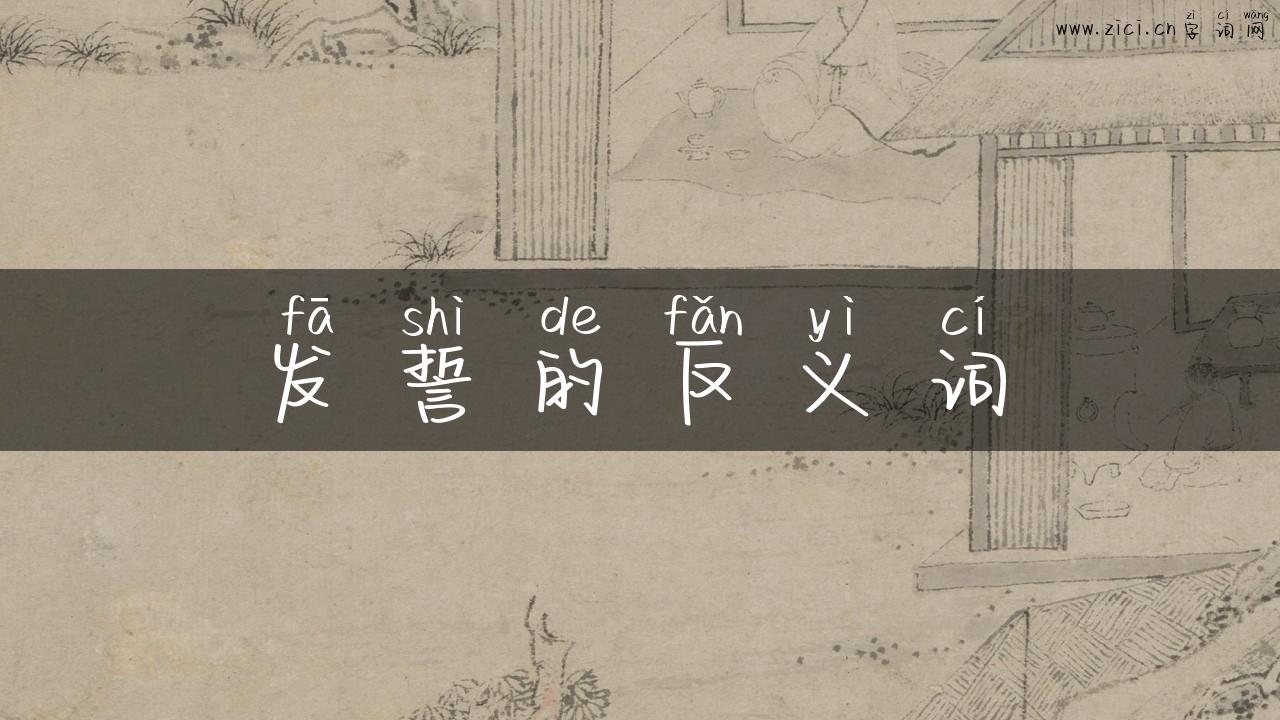 zì cí wǎng
www.zici.cn 字词网
fā shì de fǎn yì cí
发誓的反义词